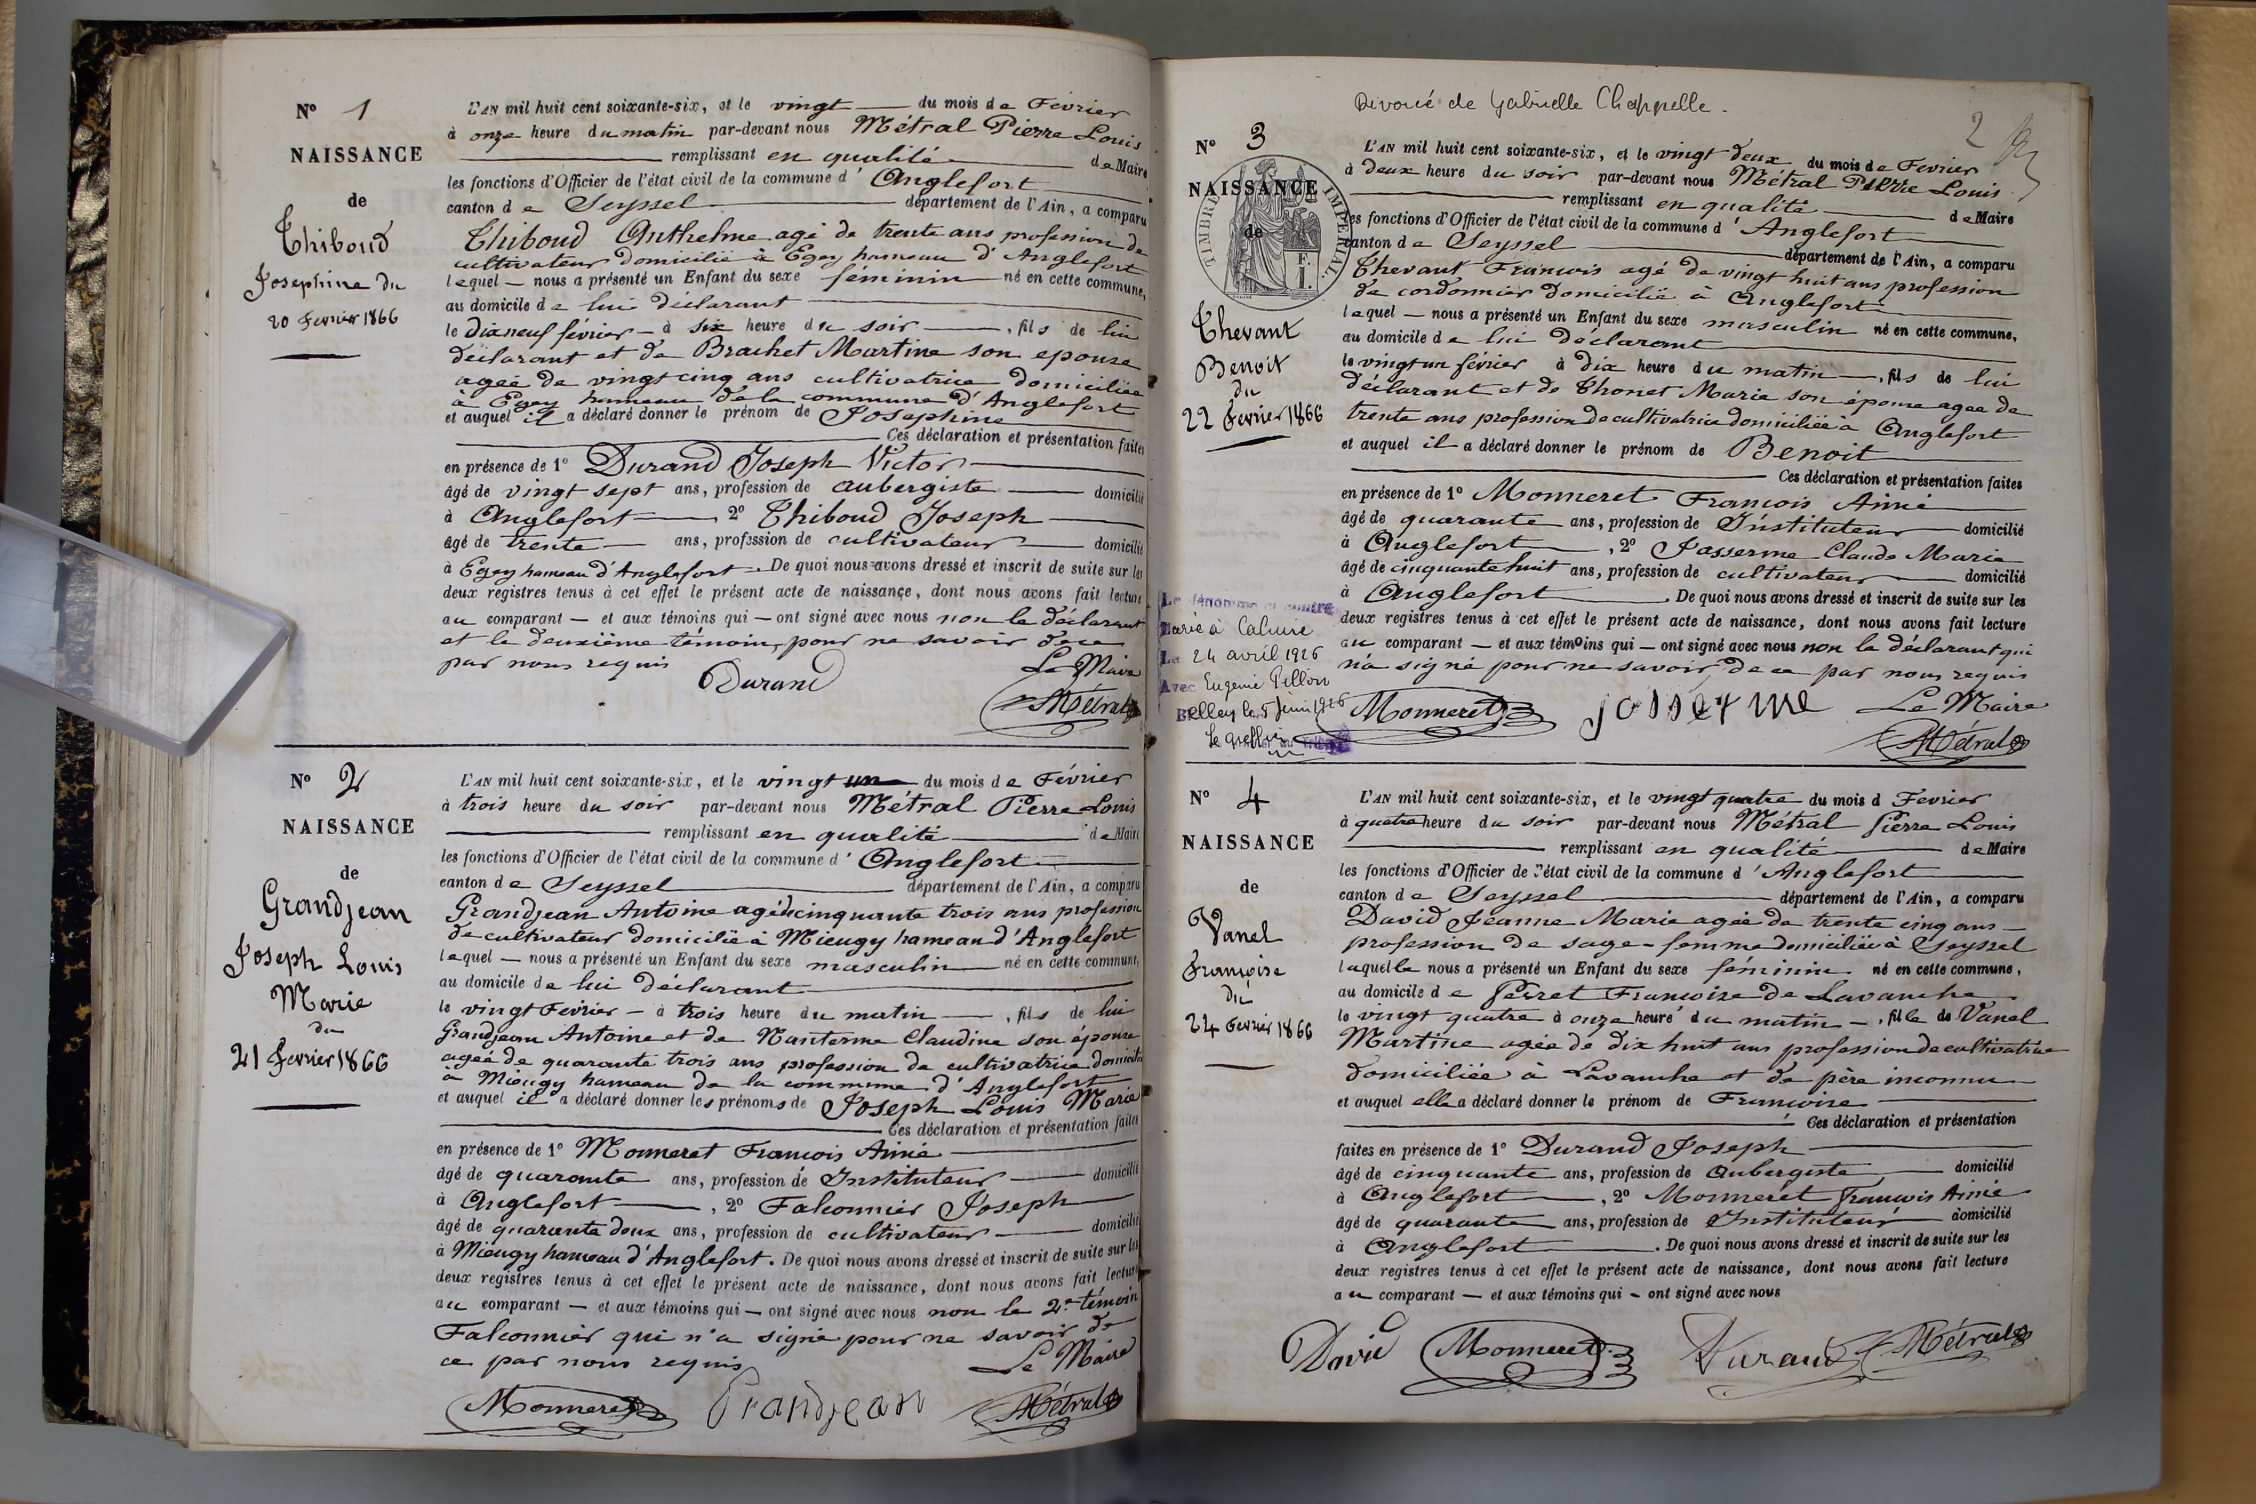 N° 1
NAISSANCE
de
Thiboud
Josephine du
20 Fevrier 1866
L'AN mil huit cent soixante-six, et le vingt du mois de Février
à onze heure du matin par-devant nous Métral Pierre Louis
remplissant en qualité de Maire
les fonctions d'Officier de l'état civil de la commune d' Anglefort
canton de Seyssel département de l'Ain, a comparu
Thiboud Anthelme agé de trente ans profession de
cultivateur domicilié à Egey hameau d'Anglefort
lequel — nous a présenté un Enfant du sexe féminin né en cette commune,
au domicile de lui déclarant
le dixneuf février à six heure du soir, fils de lui
déclarant et de Brachet Martine son epouse
ageé de vingt cinq ans cultivatrice domiciliée
à Egey hameau de la commune d'Anglefort
et auquel il a déclaré donner le prénom de Josephine
Ces déclaration et présentation faites
en présence de 1° Durand Joseph Victor
âgé de vingt sept ans, profession de aubergiste domicilié
à Anglefort, 2° Thiboud Joseph
âgé de trente ans, profession de cultivateur domicilié
à Egey hameau d'Anglefort. De quoi nous avons dressé et inscrit de suite sur les
deux registres tenus à cet effet le présent acte de naissance, dont nous avons fait lecture
au comparant — et aux témoins qui — ont signé avec nous non le déclarant
et le deuxième témoin, pour ne savoir de ce
par nous requis Le Maire
Durand Métral
N° 2
NAISSANCE
de
Grandjean
Joseph Louis
Marie
du
21 Fevrier 1866
L'AN mil huit cent soixante-six, et le vingt un du mois de Février
à trois heure du soir par-devant nous Métral Pierre Louis
remplissant en qualité de Maire
les fonctions d'Officier de l'état civil de la commune d' Anglefort
canton de Seyssel département de l'Ain, a comparu
Grandjean Antoine agé de cinquante trois ans profession
de cultivateur domicilié à Mieugy hameau d'Anglefort
lequel — nous a présenté un Enfant du sexe masculin né en cette commune,
au domicile de lui déclarant
le vingt Fevrier à trois heure du matin, fils de lui
Grandjean Antoine et de Nanterme Claudine son épouse
ageé de quarante trois ans profession de cultivatrice domicilié
à Mieugy hameau de la commune d'Anglefort
et auquel il a déclaré donner les prénoms de Joseph Louis Marie
Ces déclaration et présentation faites
en présence de 1° Monneret Francois Aimé
âgé de quarante ans, profession de Instituteur domicilié
à Anglefort, 2° Falconnier Joseph
âgé de quarante deux ans, profession de cultivateur domicilié
à Mieugy hameau d'Anglefort. De quoi nous avons dressé et inscrit de suite sur les
deux registres tenus à cet effet le présent acte de naissance, dont nous avons fait lecture
au comparant — et aux témoins qui — ont signé avec nous non le 2e témoin
Falconnier qui n'a signé pour ne savoir de
ce par nous requis Le Maire
Monneret Grandjean Métral
Divorcé de Gabrielle Chappelle.
2
N° 3
NAISSANCE
de
TIMBRE IMPÉRIAL
Thevant
Benoit
du
22 Février 1866
Le dénommé ci contre
Marié à Caluire
Le 24 avril 1926
Avec Eugenie Pellon
Belley le 5 Juin 1926
Le greffier
L'AN mil huit cent soixante-six, et le vingt deux du mois de Fevrier
à deux heure du soir par-devant nous Métral Pierre Louis
remplissant en qualité de Maire
les fonctions d'Officier de l'état civil de la commune d' Anglefort
canton de Seyssel département de l'Ain, a comparu
Thevant Francois agé de vingt huit ans profession
de cordonnier domicilié à Anglefort
lequel — nous a présenté un Enfant du sexe masculin né en cette commune,
au domicile de lui déclarant
le vingt un février à dix heure du matin, fils de lui
déclarant et de Thonet Marie son épouse agee de
trente ans profession de cultivatrice domiciliée à Anglefort
et auquel il a déclaré donner le prénom de Benoit
Ces déclaration et présentation faites
en présence de 1° Monneret Francois Aimé
âgé de quarante ans, profession de Instituteur domicilié
à Anglefort, 2° Josserme Claude Marie
âgé de cinquante huit ans, profession de cultivateur domicilié
à Anglefort. De quoi nous avons dressé et inscrit de suite sur les
deux registres tenus à cet effet le présent acte de naissance, dont nous avons fait lecture
au comparant — et aux témoins qui — ont signé avec nous non le déclarant qui
n'a signé pour ne savoir, de ce par nous requis
Monneret josserme Le Maire
Métral
N° 4
NAISSANCE
de
Vanel
Françoise
du
24 Fevrier 1866
L'AN mil huit cent soixante-six, et le vingt quatre du mois d Fevrier
à quatre heure du soir par-devant nous Métral Pierre Louis
remplissant en qualité de Maire
les fonctions d'Officier de l'état civil de la commune d' Anglefort
canton de Seyssel département de l'Ain, a comparu
David Jeanne Marie ageé de trente cinq ans
profession de sage-femme domiciliée à Seyssel
laquelle nous a présenté un Enfant du sexe féminin né en cette commune,
au domicile de Perret Francoise de Lavanche
le vingt quatre à onze heure du matin, fille de Vanel
Martine agée de dix huit ans profession de cultivatrice
domiciliée à Lavanche et de père inconnu
et auquel elle a déclaré donner le prénom de Francoise
Ces déclaration et présentation
faites en présence de 1° Durand Joseph
âgé de cinquante ans, profession de Aubergiste domicilié
à Anglefort, 2° Monneret Francois Aimé
âgé de quarante ans, profession de Instituteur domicilié
à Anglefort. De quoi nous avons dressé et inscrit de suite sur les
deux registres tenus à cet effet le présent acte de naissance, dont nous avons fait lecture
au comparant — et aux témoins qui - ont signé avec nous
David Monneret Durand Métral